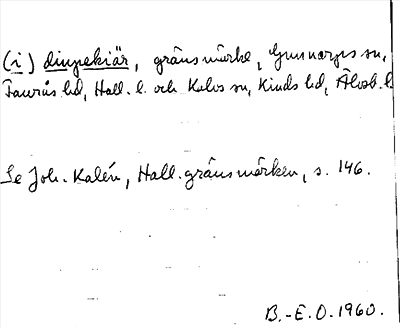 (i) dinpekiär, gränsmärke, Gunnarps sn,
Faurås hd, Hall. l. och Kalvs sn, Kinds hd, Älvsb. l.
Se Joh. Kalén, Hall. gränsmärken, s. 146.
B.-E.O. 1960.